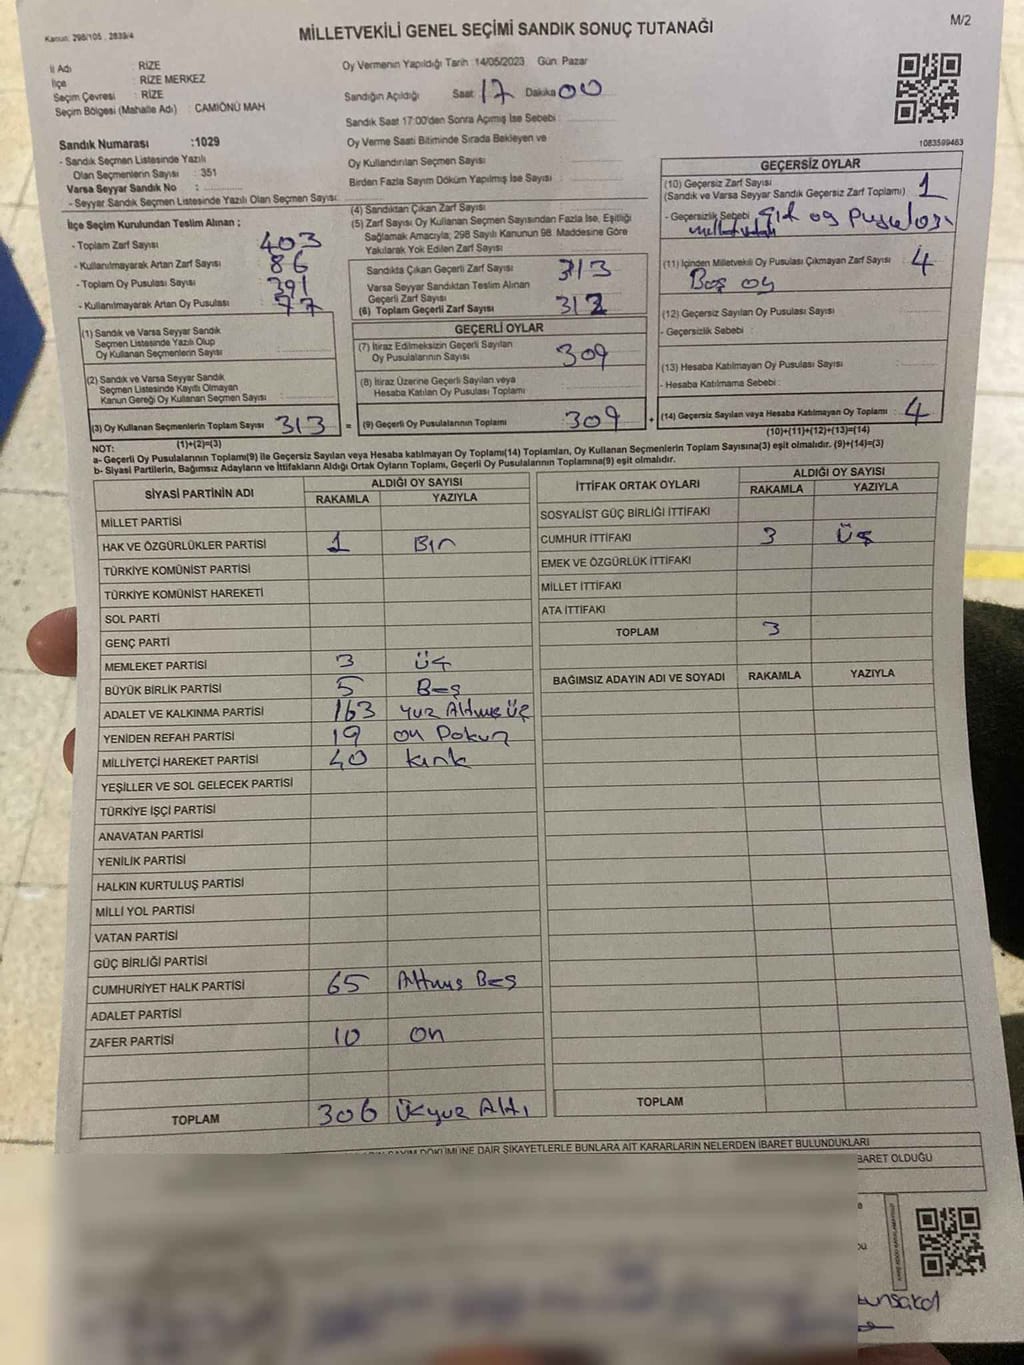 Kanun: 298/105 , 2839/4
MİLLETVEKİLİ GENEL SEÇİMİ SANDIK SONUÇ TUTANAĞI
M/2
İl Adı : RİZE
İlçe : RİZE MERKEZ
Seçim Çevresi : RİZE
Seçim Bölgesi (Mahalle Adı) : CAMİÖNÜ MAH
Oy Vermenin Yapıldığı Tarih :14/05/2023 Gün: Pazar
Sandığın Açıldığı Saat 17 Dakika 00
Sandık Saat 17:00'den Sonra Açımış İse Sebebi :
Oy Verme Saati Bitiminde Sırada Bekleyen ve
Oy Kullandırılan Seçmen Sayısı :
Birden Fazla Sayım Döküm Yapılmış İse Sayısı :
1083599463
Sandık Numarası :1029
- Sandık Seçmen Listesinde Yazılı
Olan Seçmenlerin Sayısı : 351
Varsa Seyyar Sandık No :
- Seyyar Sandık Seçmen Listesinde Yazılı Olan Seçmen Sayısı:
İlçe Seçim Kurulundan Teslim Alınan ;
- Toplam Zarf Sayısı : 403
- Kullanılmayarak Artan Zarf Sayısı : 86
- Toplam Oy Pusulası Sayısı : 391
- Kullanılmayarak Artan Oy Pusulası : 77
(1) Sandık ve Varsa Seyyar Sandık
Seçmen Listesinde Yazılı Olup
Oy Kullanan Seçmenlerin Sayısı :
(2) Sandık ve Varsa Seyyar Sandık
Seçmen Listesinde Kayıtlı Olmayan
Kanun Gereği Oy Kullanan Seçmen Sayısı :
(3) Oy Kullanan Seçmenlerin Toplam Sayısı : 313
(1)+(2)=(3)
(4) Sandıktan Çıkan Zarf Sayısı
(5) Zarf Sayısı Oy Kullanan Seçmen Sayısından Fazla İse, Eşitliği
Sağlamak Amacıyla; 298 Sayılı Kanunun 98. Maddesine Göre
Yakılarak Yok Edilen Zarf Sayısı
Sandıkta Çıkan Geçerli Zarf Sayısı : 313
Varsa Seyyar Sandıktan Teslim Alınan
Geçerli Zarf Sayısı :
(6) Toplam Geçerli Zarf Sayısı : 312
GEÇERLİ OYLAR
(7) İtiraz Edilmeksizin Geçerli Sayılan
Oy Pusulalarının Sayısı : 309
(8) İtiraz Üzerine Geçerli Sayılan veya
Hesaba Katılan Oy Pusulası Toplamı :
= (9) Geçerli Oy Pusulalarının Toplamı : 309
GEÇERSİZ OYLAR
(10) Geçersiz Zarf Sayısı
(Sandık ve Varsa Seyyar Sandık Geçersiz Zarf Toplamı) : 1
- Geçersizlik Sebebi : oy Pusulası
(11) İçinden Milletvekili Oy Pusulası Çıkmayan Zarf Sayısı : 4
Boş oy
(12) Geçersiz Sayılan Oy Pusulası Sayısı :
- Geçersizlik Sebebi :
(13) Hesaba Katılmayan Oy Pusulası Sayısı :
- Hesaba Katılmama Sebebi :
+ (14) Geçersiz Sayılan veya Hesaba Katılmayan Oy Toplamı : 4
(10)+(11)+(12)+(13)=(14)
NOT:
a- Geçerli Oy Pusulalarının Toplamı(9) ile Geçersiz Sayılan veya Hesaba katılmayan Oy Toplamı(14) Toplamları, Oy Kullanan Seçmenlerin Toplam Sayısına(3) eşit olmalıdır. (9)+(14)=(3)
b- Siyasi Partilerin, Bağımsız Adayların ve İttifakların Aldığı Ortak Oyların Toplamı, Geçerli Oy Pusulalarının Toplamına(9) eşit olmalıdır.
SİYASİ PARTİNİN ADI ALDIĞI OY SAYISI
RAKAMLA YAZIYLA
MİLLET PARTİSİ
HAK VE ÖZGÜRLÜKLER PARTİSİ 1 Bır
TÜRKİYE KOMÜNİST PARTİSİ
TÜRKİYE KOMÜNİST HAREKETİ
SOL PARTİ
GENÇ PARTİ
MEMLEKET PARTİSİ 3 Üç
BÜYÜK BİRLİK PARTİSİ 5 Beş
ADALET VE KALKINMA PARTİSİ 163 yuz Altmış üç
YENİDEN REFAH PARTİSİ 19 on Dokuz
MİLLİYETÇİ HAREKET PARTİSİ 40 kırk
YEŞİLLER VE SOL GELECEK PARTİSİ
TÜRKİYE İŞÇİ PARTİSİ
ANAVATAN PARTİSİ
YENİLİK PARTİSİ
HALKIN KURTULUŞ PARTİSİ
MİLLİ YOL PARTİSİ
VATAN PARTİSİ
GÜÇ BİRLİĞİ PARTİSİ
CUMHURİYET HALK PARTİSİ 65 Altmış Beş
ADALET PARTİSİ
ZAFER PARTİSİ 10 on
TOPLAM 306 Üçyuz Altı
İTTİFAK ORTAK OYLARI ALDIĞI OY SAYISI
RAKAMLA YAZIYLA
SOSYALİST GÜÇ BİRLİĞİ İTTİFAKI
CUMHUR İTTİFAKI 3 Üç
EMEK VE ÖZGÜRLÜK İTTİFAKI
MİLLET İTTİFAKI
ATA İTTİFAKI
TOPLAM 3
BAĞIMSIZ ADAYIN ADI VE SOYADI RAKAMLA YAZIYLA
TOPLAM
DÖKÜMÜNE DAİR ŞİKAYETLERLE BUNLARA AİT KARARLARIN NELERDEN İBARET BULUNDUKLARI
BARET OLDUĞU